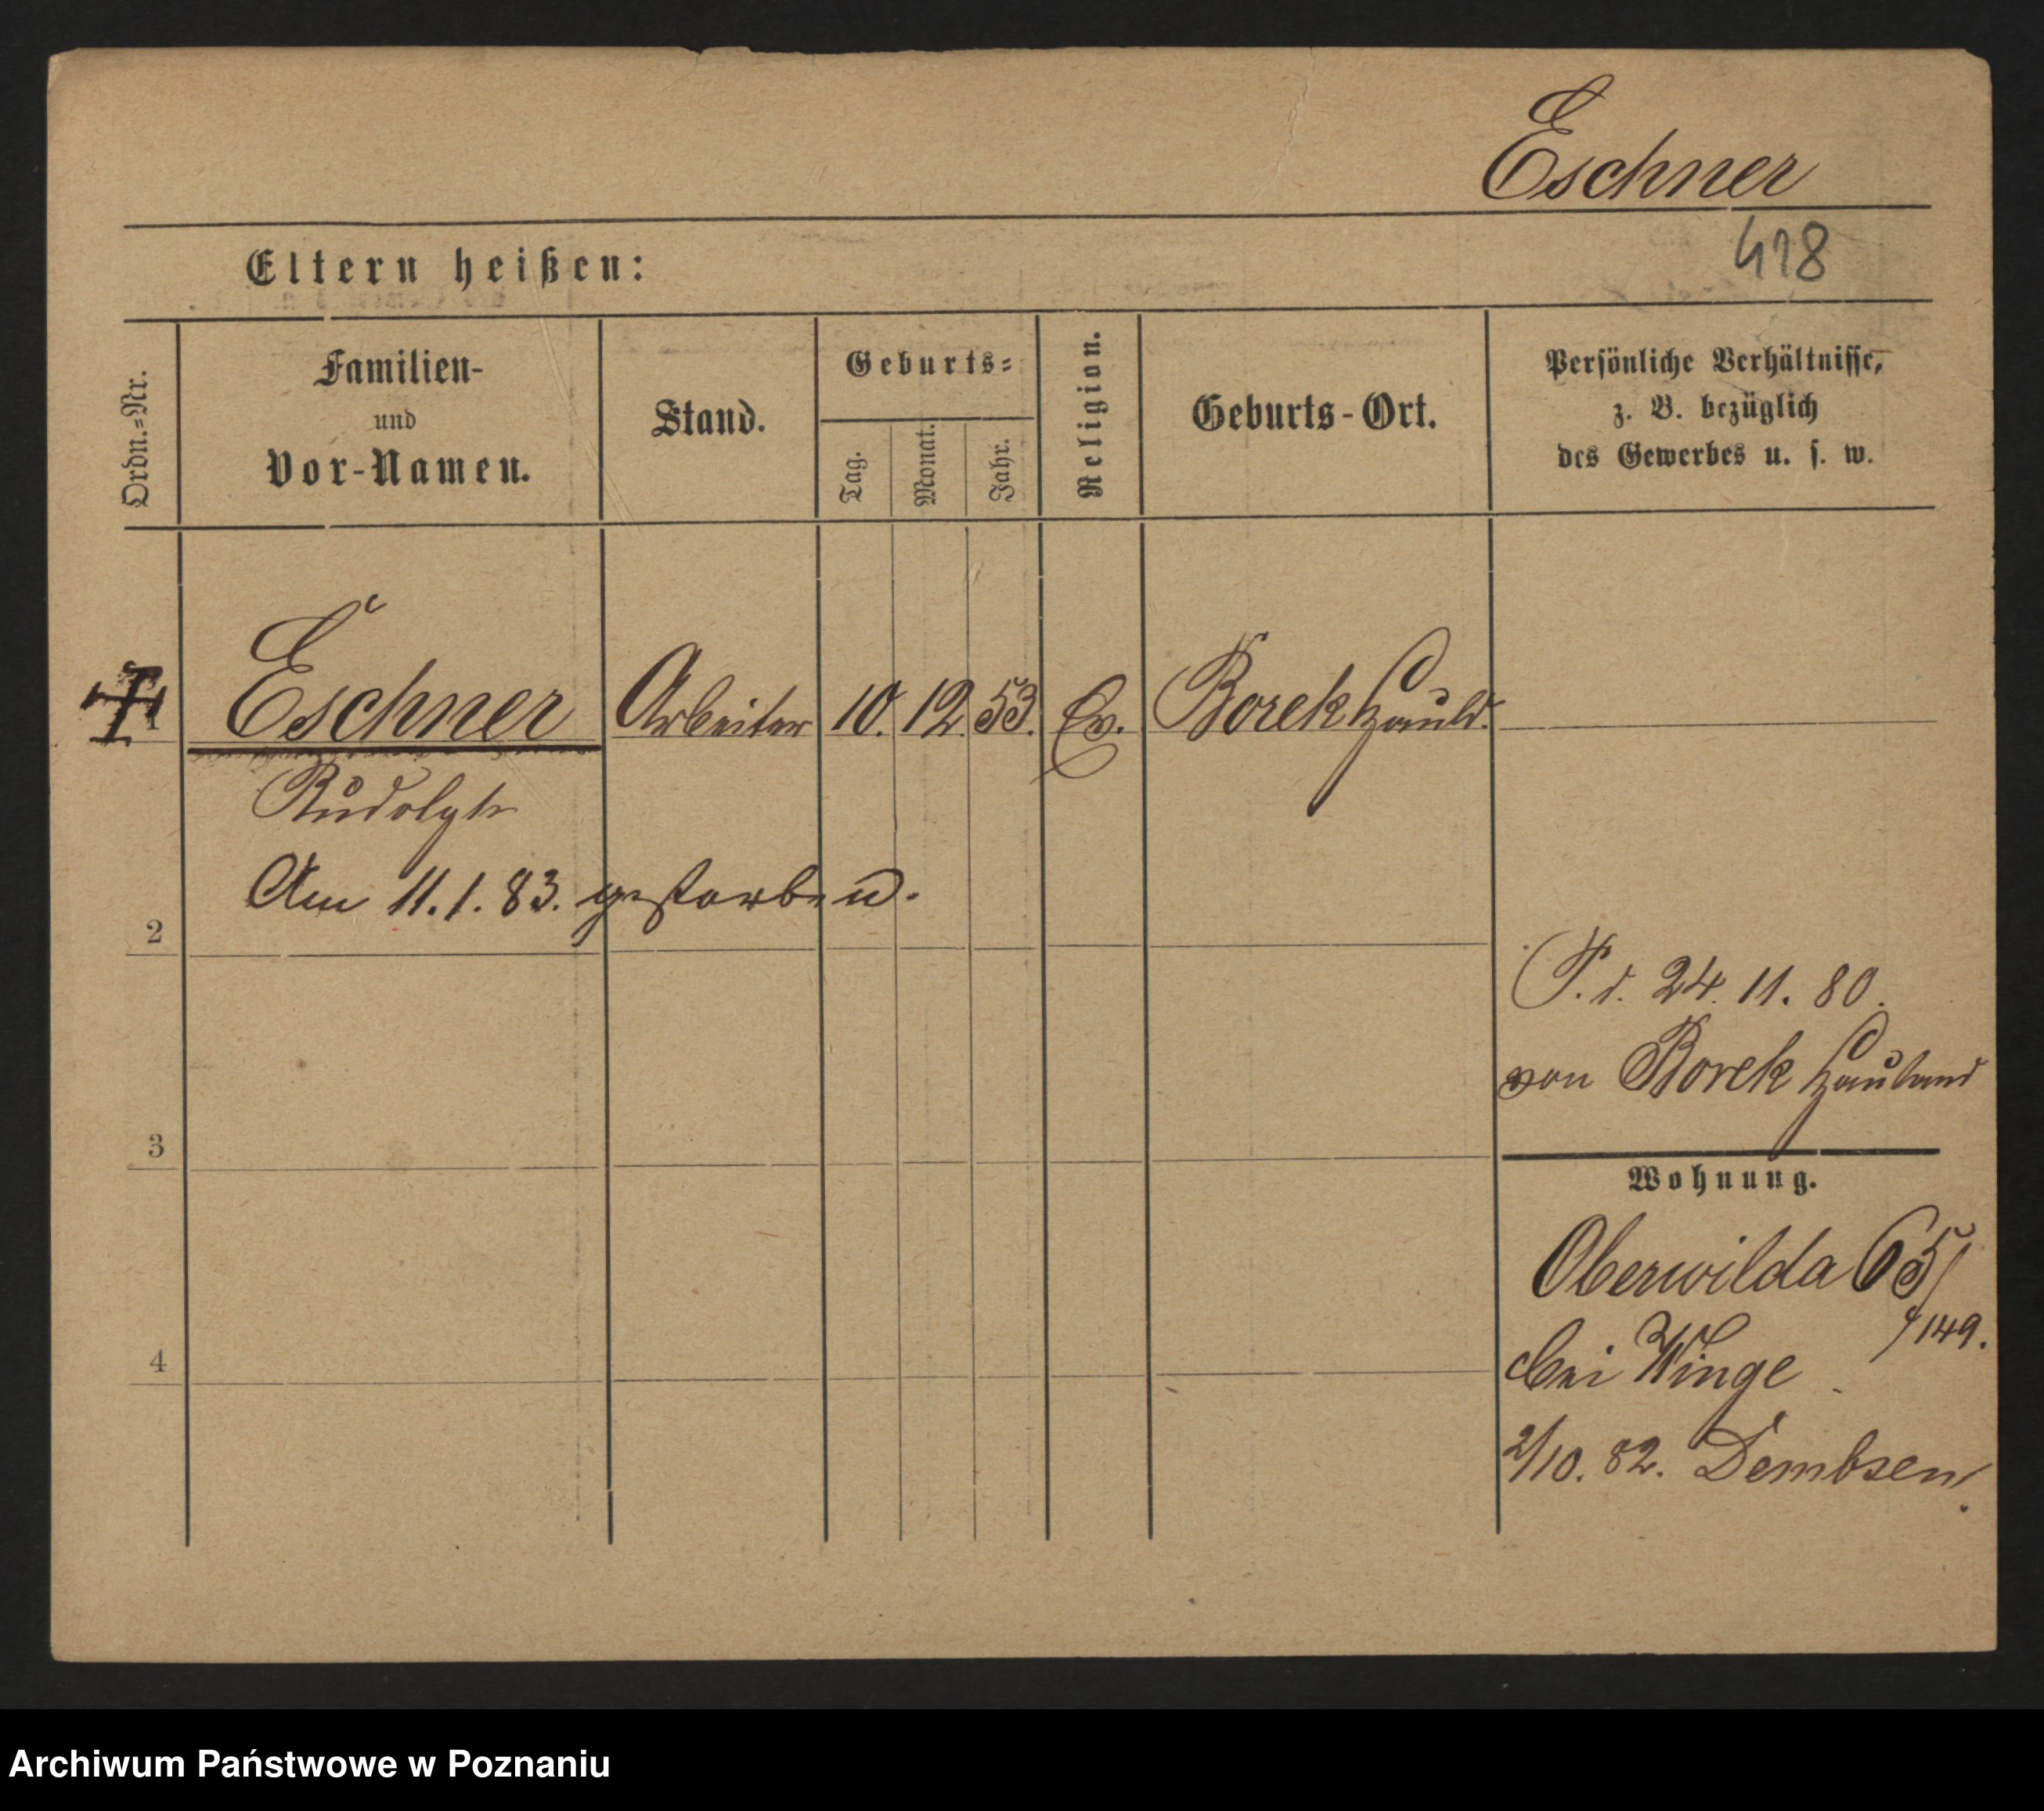 Eschner
418
Eltern heißen:
Ordn.-Nr.
Familien-
und
Vor-Namen.
Stand.
Geburts-
Tag.
Monat.
Jahr.
Religion.
Geburts-Ort.
Persönliche Verhältnisse,
z. B. bezüglich
des Gewerbes u. s. w.
1 Eschner Arbeiter 10. 12. 53. Ev. Borek Hauld.
Rudolph
Am 11.1.83. gestorben.
2
P. d. 24. 11. 80.
von Borek Hauland
3
Wohnung.
Oberwilda 65/
149.
4
bei Winge
2/10. 82. Dembsen.
Archiwum Państwowe w Poznaniu